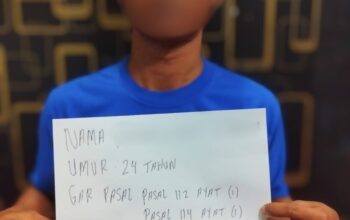 NAMA
UMUR 24 TAHUN
GAR PASAL PASAL 112 AYAT (1)
PASAL 114 AYAT (1)